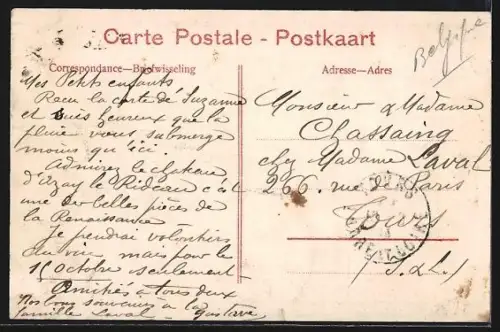 Carte Postale - Postkaart
Belgique
Correspondance—Briefwisseling
Mes Petits enfants
Recu la carte de Suzanne
et suis heureux que la
pluie vous submerge
moins qu'ici.
Admirez le chateau
d'Azay le Rideau c'est
une des belles pièces de
la Renaissance
Je prendrai volontiers
du vin mais pour le
15 Octobre seulement
Amitiés à tous deux
Nos bons souvenirs à la
famille Laval — Gustave
Adresse—Adres
Monsieur & Madame
Chassaing
chez Madame Laval
266 rue de Paris
Tours
(I. & L.)
TOURS